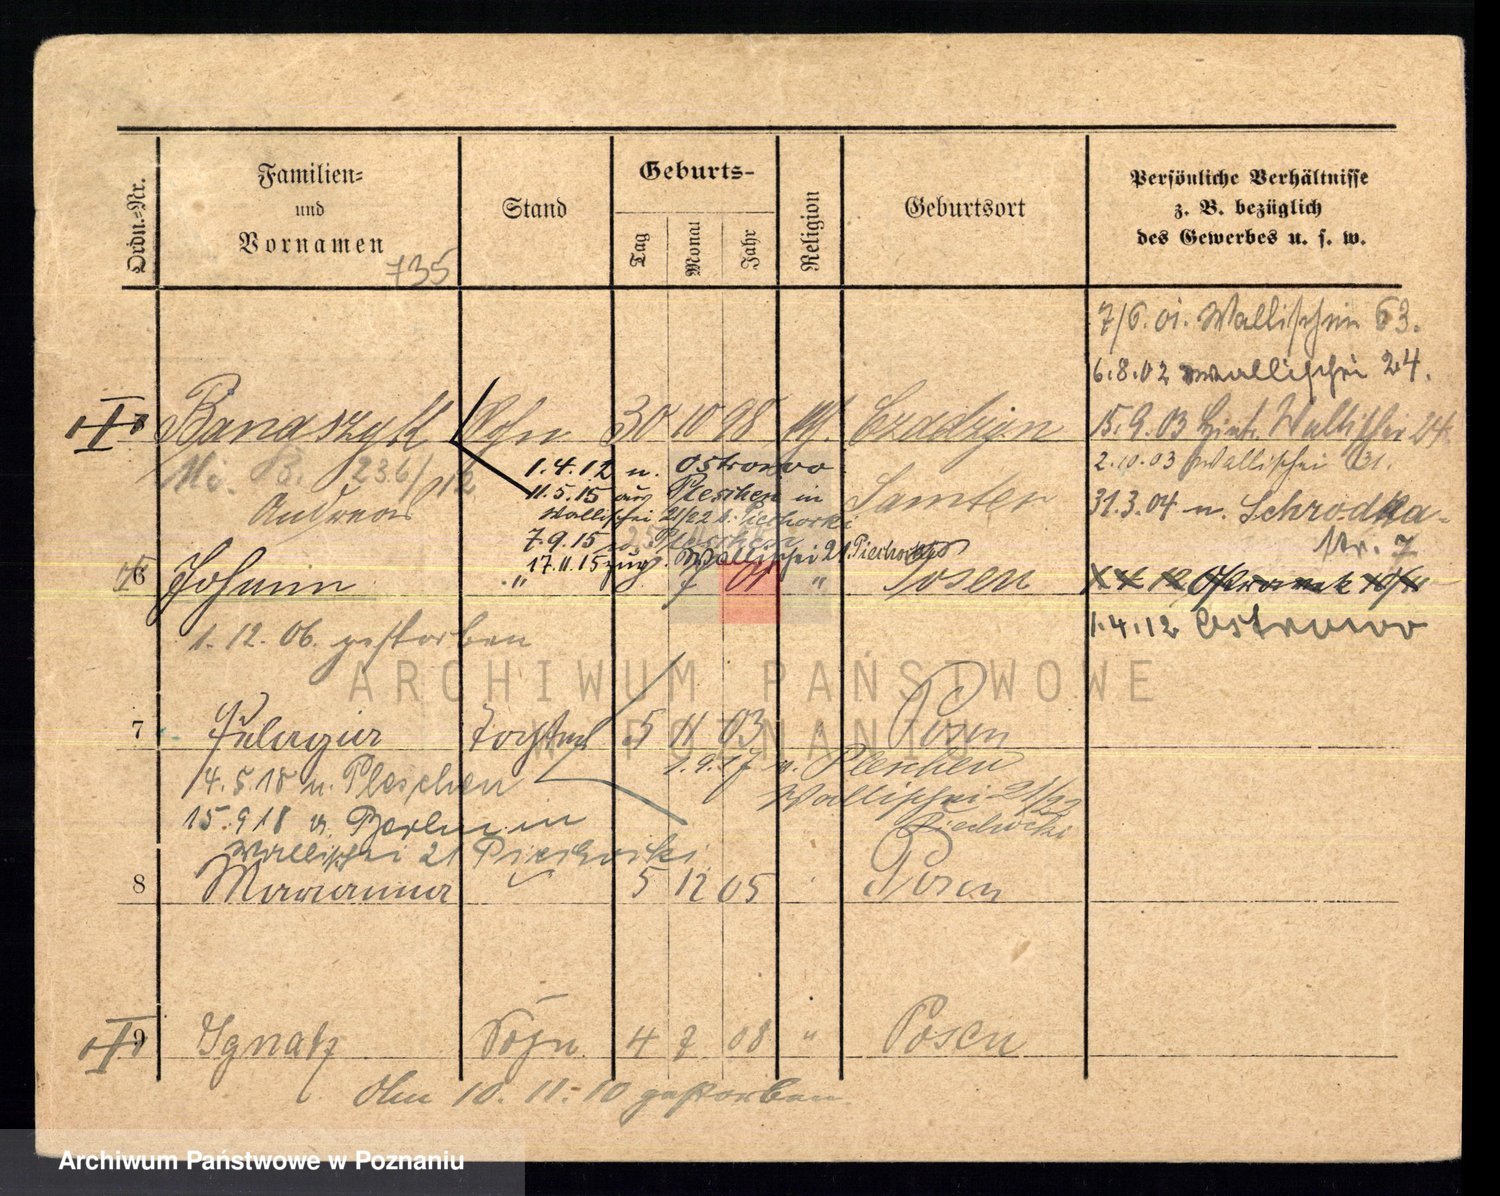 Ordn.-Nr.
Familien-
und
Vornamen
735
Stand
Geburts-
Tag
Monat
Jahr
Religion
Geburtsort
Persönliche Verhältnisse
z. B. bezüglich
des Gewerbes u. s. w.
7/6. 01. Wallischei 63.
6.8.02 Wallischei 24.
Banaszyk Sohn 30 10 98
15.9.03 Wallischei 24
236/12
1.4.12 n. Ostrowo
2.10.03 Wallischei 31.
Andreas
11.5.15 aus Pleschen in
Samter
31.3.04 n. Schrodka-
Wallischei 21/22 b. Piechocki
str. 7
7.9.15 n. Pleschen
17.11.15 zug. Wallischei 21. Piechocki
6 Johann " 7 01 " Posen
1.12.06. gestorben
1.4.12 Ostrowo
ARCHIWUM PAŃSTWOWE
W POZNANIU
7 Pelagia Tochter 5 11 03 Posen
14.5.18 n. Pleschen
1.9.17 n. Pleschen
Wallischei 21/22
Piechocki
15.9.18 v. Berlin in
Wallischei 21 Piechocki
8 Marianna 5 12 05 Posen
9 Ignatz Sohn 4 7 08 " Posen
Am 10.11.10 gestorben.
Archiwum Państwowe w Poznaniu